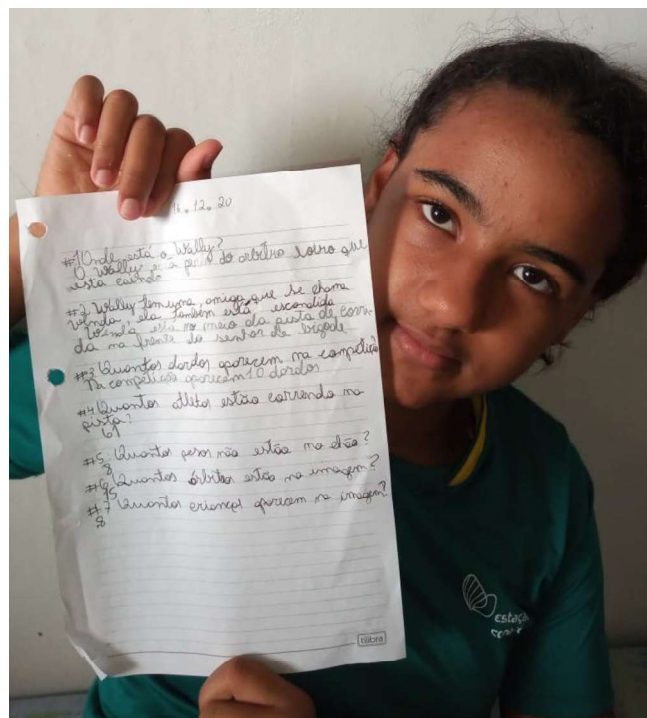 16.12.20
#1 Onde está o Wally?
O Wally está perto do árbitro loiro que
está caindo
#2 Wally tem uma amiga que se chama
Wenda, ela também está escondida
Wenda está no meio da pista de corri-
da na frente do senhor de bigode
#3 Quantos dardos aparecem na competição
Na competição aparecem 10 dardos
#4 Quantos atletas estão correndo na
pista?
#5: Quantos pesos não estão no chão?
8
#6 Quantos árbitros estão na imagem?
#7 Quantas crianças aparecem na imagem?
8
tilibra